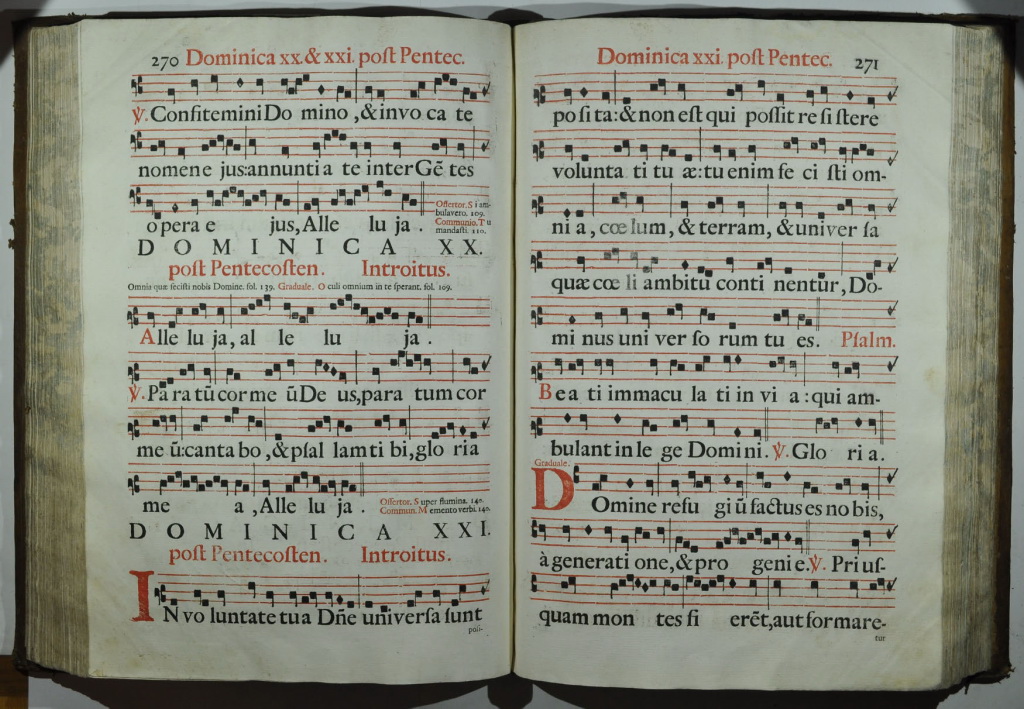 270 Dominica xx. & xxi. post Pentec.
℣. Confitemini Do mino , & invo ca te
nomen e jus: annunti a te inter Gẽ tes
o pera e jus, Alle lu ja .
Offertor. S i am-
bulavero. 109.
Communio. T u
mandasti. 110.
D O M I N I C A X X.
post Pentecosten. Introitus.
Omnia quæ fecisti nobis Domine. fol. 139. Graduale. O culi omnium in te sperant. fol. 109.
Alle lu ja, al le lu ja .
℣. Pa ra tũ cor me ũ De us, para tum cor
me ũ: canta bo , & psal lam ti bi, glo ria
me a , Alle lu ja .
Offertor. S uper flumina. 140.
Commun. M emento verbi. 140.
D O M I N I C A X X I.
post Pentecosten. Introitus.
I N vo luntate tu a Dñe universa sunt
posi-
Dominica xxi. post Pentec. 271
po si ta: & non est qui possit re si stere
volunta ti tu æ: tu enim fe ci sti om-
ni a , cœ lum, & terram, & univer sa
quæ cœ li ambitu conti nentur, Do-
mi nus uni ver so rum tu es. Psalm.
B e a ti immacu la ti in vi a : qui am-
bulant in le ge Domi ni. ℣. Glo ri a.
Graduale.
D Omine refu gi ũ factus es no bis,
à generati one, & pro geni e. ℣. Pri us-
quam mon tes fi erẽt, aut formare-
tur